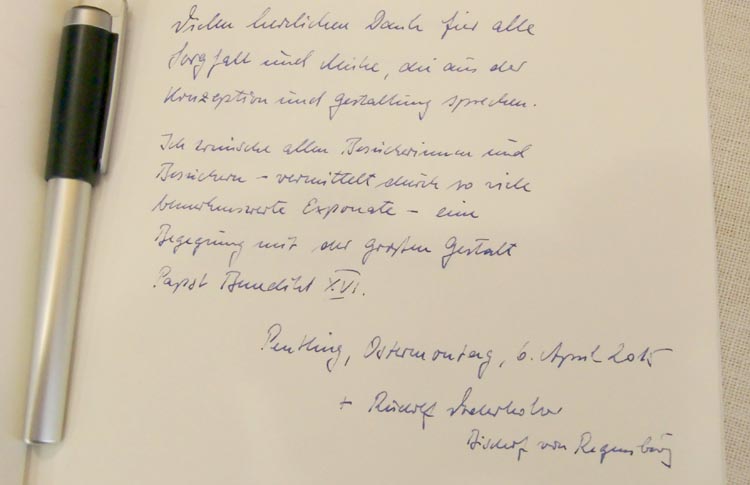 Vielen herzlichen Dank für alle
Sorgfalt und Mühe, die aus der
Konzeption und Gestaltung sprechen.
Ich wünsche allen Besucherinnen und
Besuchern – vermittelt durch so viele
bemerkenswerte Exponate – eine
Begegnung mit der großen Gestalt
Papst Benedikt XVI.
Pentling, Ostermontag, 6. April 2015
+ Rudolf Voderholzer
Bischof von Regensburg